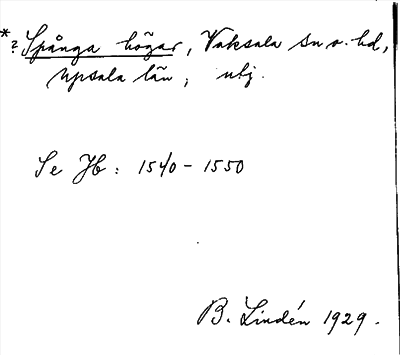 *? Spånga högar, Vaksala sn o. hd,
Upsala län; utj.
Se Jb: 1540-1550
B. Lindén 1929.